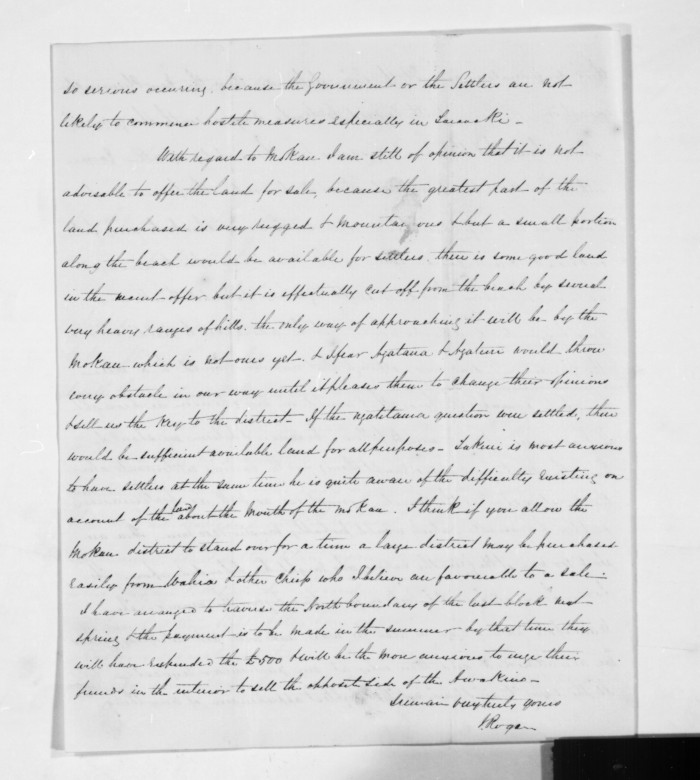 so serious occuring. because the Government or the Settlers are not
likely to commence hostile measures especially in Taranaki -
With regard to Mokau I am still of opinion that it is not
advisable to offer the land for sale, because the greatest part of the
land purchased is very rugged & mountainous & but a small portion
along the beach would be available for settlers. there is some good land
in the recent offer but it is effectually cut off from the beach by several
very heavy ranges of hills. the only way of approaching it will be by the
Mokau which is not ours yet. & I fear Ngatiawa & would throw
every obstacle in our way until it pleases them to change their opinions
& sell us the key to the district - If the question were settled, there
would be sufficient available land for all purposes - Takirei is most anxious
to have settlers at the same time he is quite aware of the difficulty existing on
account of the land about the mouth of the Mokau. I think if you allow the
Mokau district to stand over for a time a large district may be purchased
easily from Wahia & other Chiefs who I believe are favourable to a sale -
I have arranged to traverse the North boundary of the last block next
spring & the payment is to be made in the summer - by that time they
will have expended the £500 & will be the more anxious to urge their
friends in the interior to sell the opposite side of the Awakino -
I remain very truly yours
J Rogan